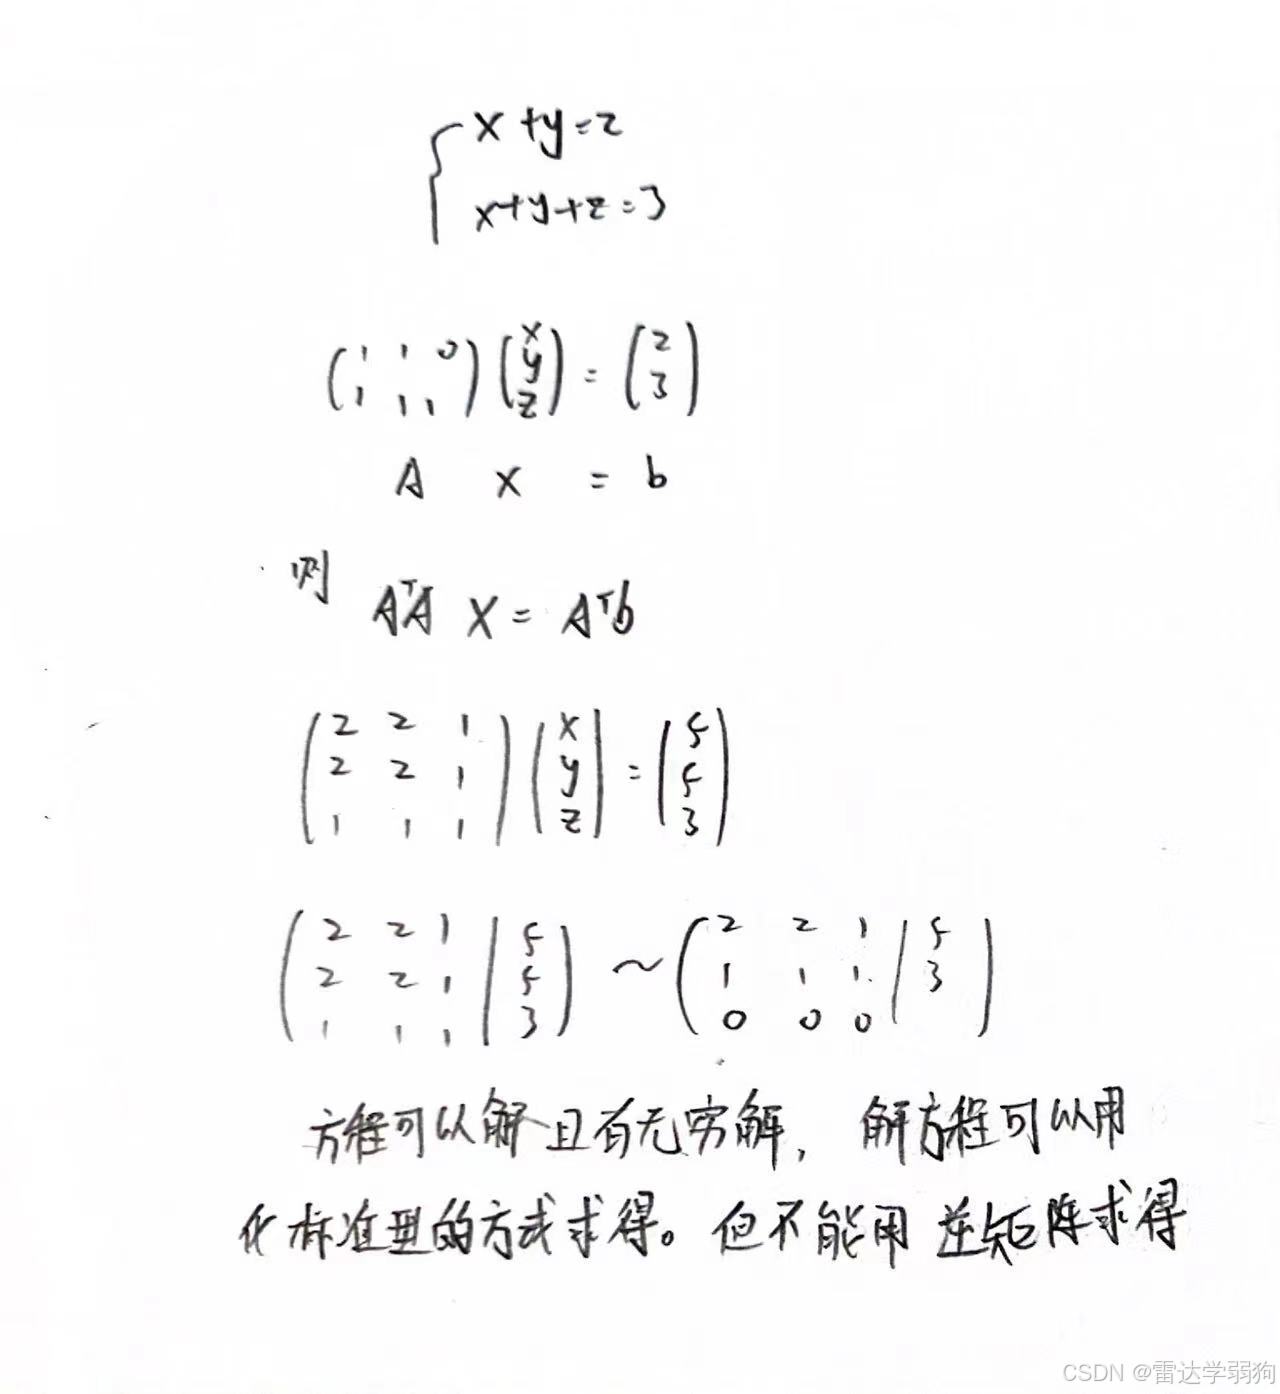 x+y=2
x+y+z=3
(1 1 0) (x) = (2)
(1 1 1) (y) (3)
(z)
A x = b
则
AᵀA X = Aᵀb
(2 2 1) (x) = (5)
(2 2 1) (y) (5)
(1 1 1) (z) (3)
(2 2 1 | 5) ~ (2 2 1 | 5)
(2 2 1 | 5) (1 1 1 | 3)
(1 1 1 | 3) (0 0 0 | )
方程可以解且有无穷解，解方程可以用
化标准型的方式求得。但不能用逆矩阵求得
CSDN @雷达学弱狗